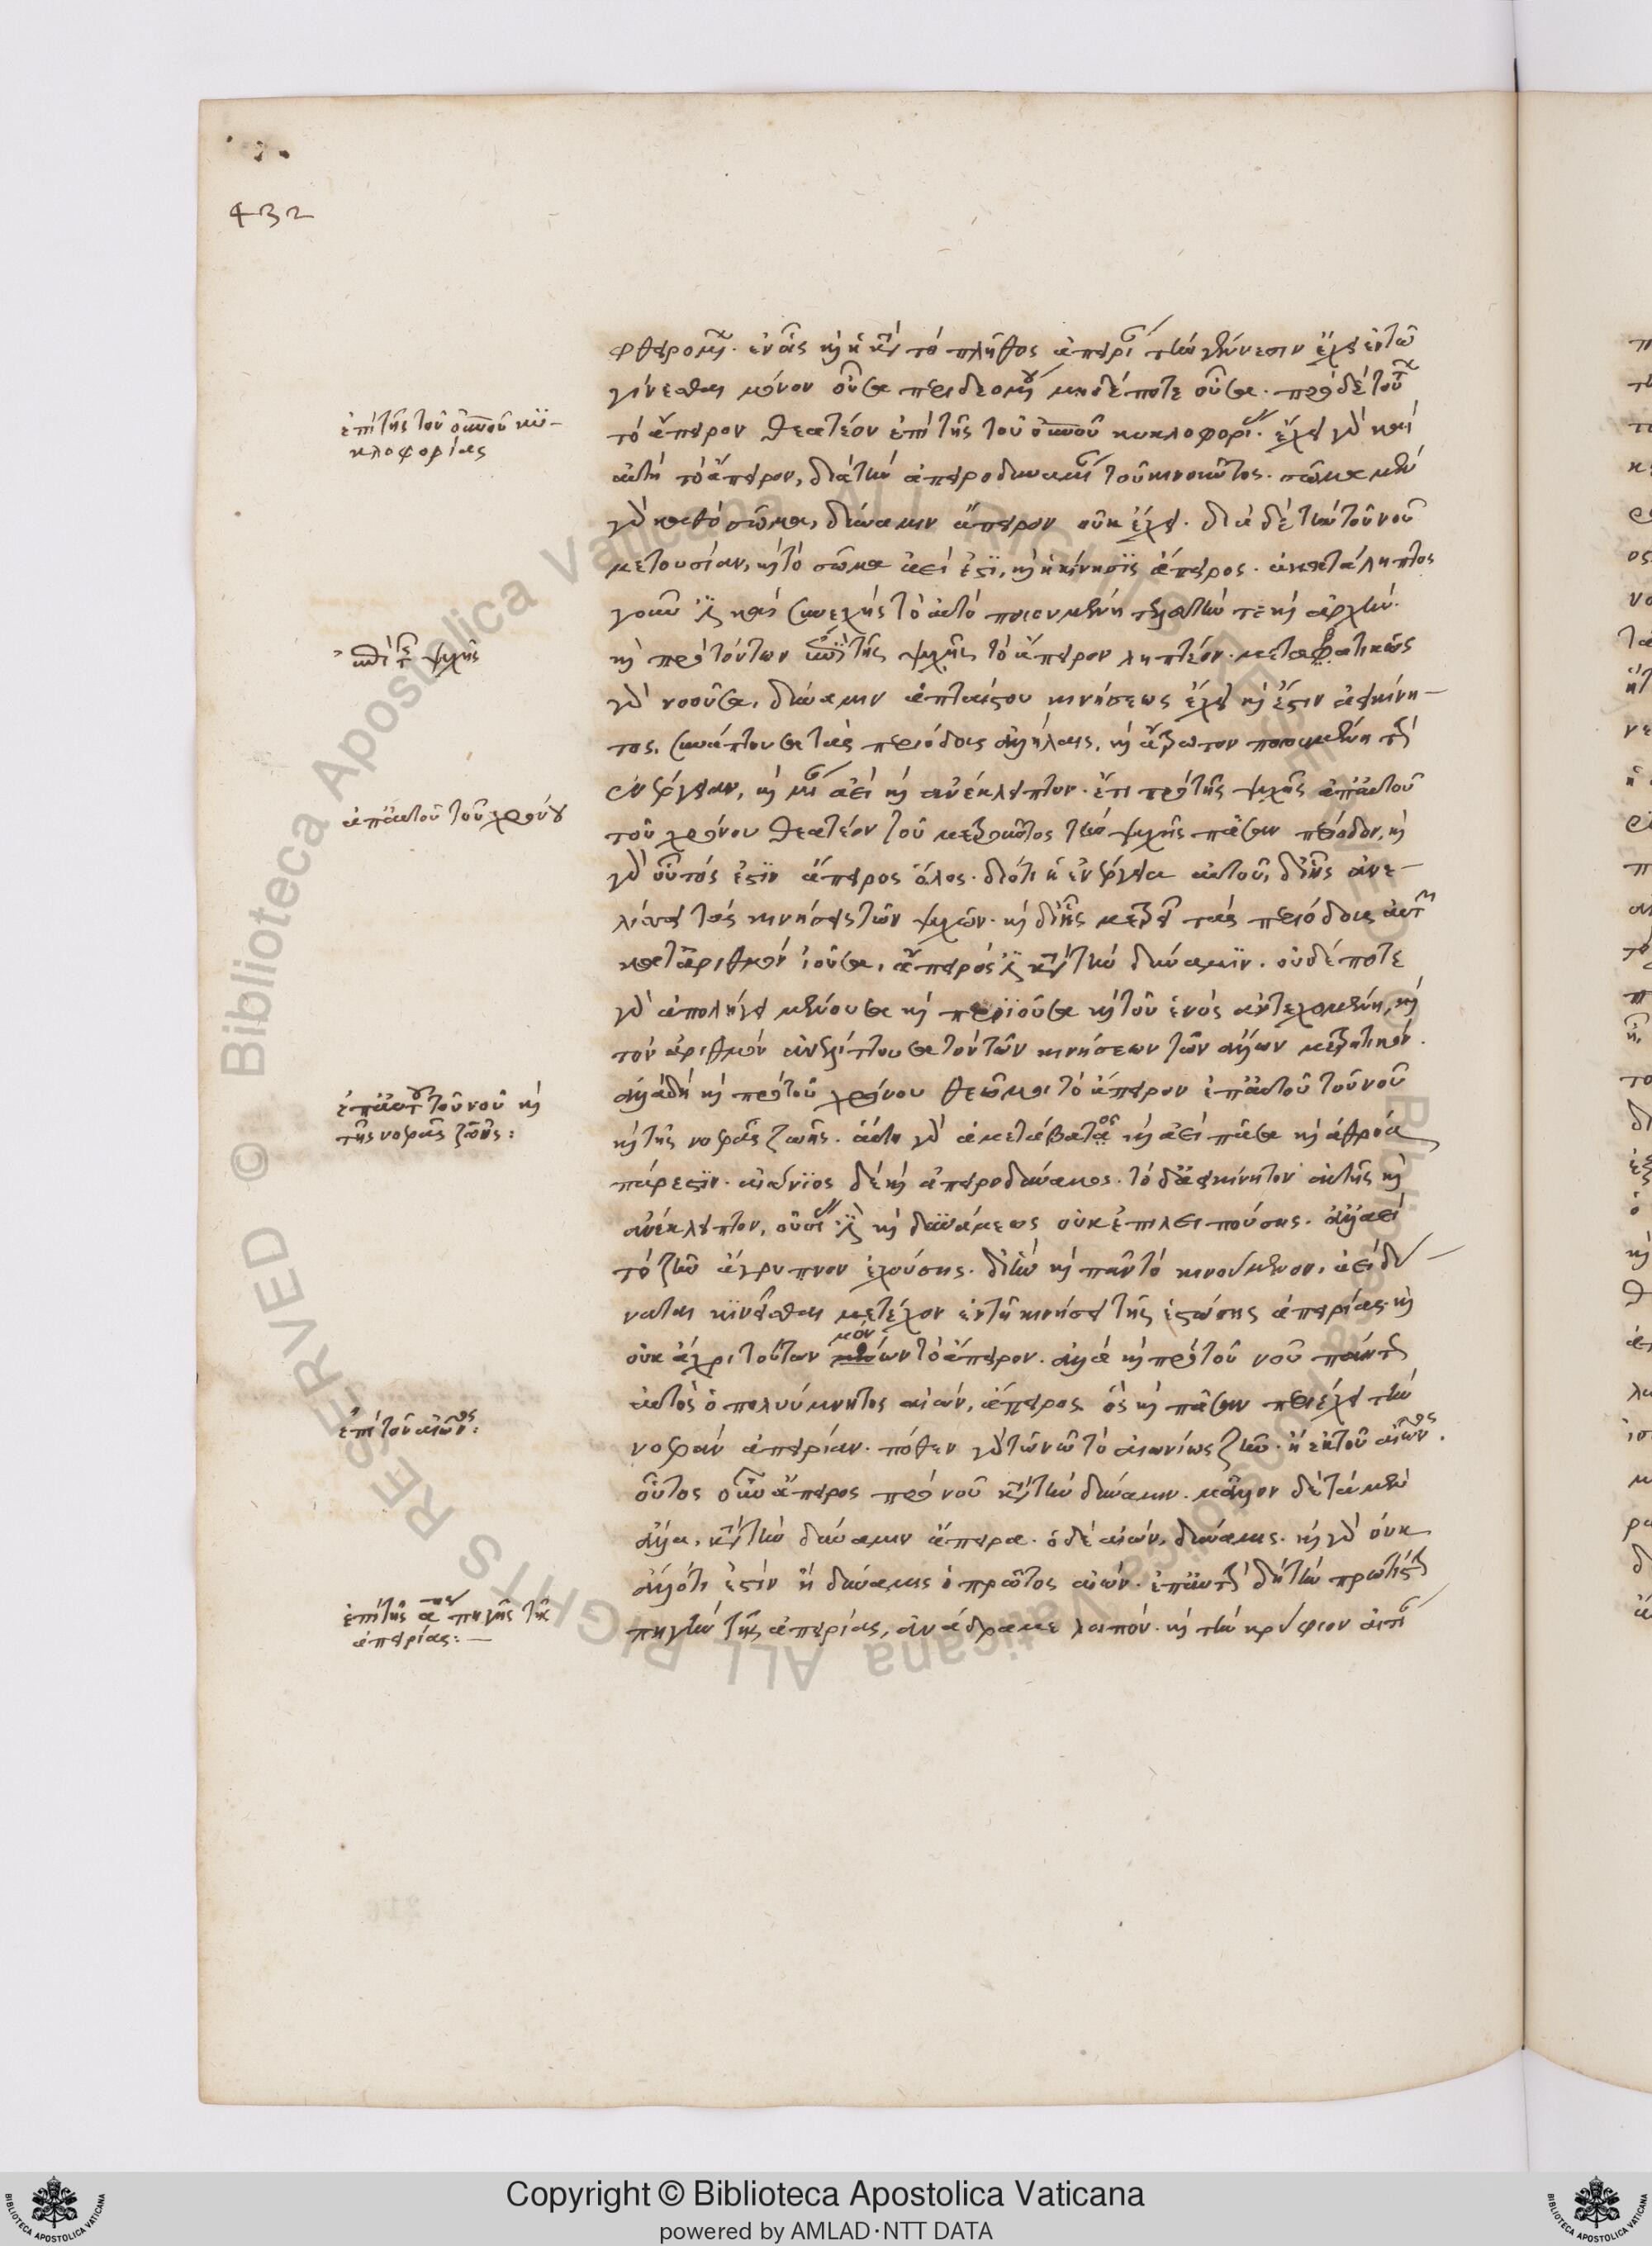 432
φθειρομέν. ἑνὰς καὶ ἡ κατὰ τὸ πλῆθος ἀπειρία τὴν γένεσιν ἔχει ἐν τῷ
γίνεσθαι μόνον οὖσα μηδέποτε οὖσα. πρὸ δὲ τούτων
τὸ ἄπειρον θεατέον ἐπὶ τῆς τοῦ οὐνοῦ κυκλοφορίας. ἔχει γὰρ καὶ
αὐτὴ τὸ ἄπειρον, διὰ τὴν ἀπειροδυναμίαν τοῦ κινοῦντος. σῶμα μὲν
γὰρ καθὸ σῶμα, δύναμιν ἄπειρον οὐκ ἔχει. διὰ δὲ τὴν τοῦ νοῦ
μετουσίαν, καὶ τὸ σῶμα ἀεί ἐστι, καὶ ἡ κίνησις ἄπειρος. ἀκατάληκτος
γοῦν ἐστι καὶ συνεχὴς τὸ αὐτὸ ποιουμένη τελευτήν τε καὶ ἀρχήν.
καὶ πρὸ τούτων τῆς ψυχῆς τὸ ἄπειρον ληπτέον. μεταβατικῶς
γὰρ νοοῦσα, δύναμιν ἀπταίστου κινήσεως ἔχει καὶ ἔστιν ἀεικίνη-
τος, συνάπτουσα τὰς περιόδους ἀλλήλαις, καὶ ἄτρυτον ποιουμένη τὴν
ἐνέργειαν, καὶ μίαν ἀεὶ καὶ ἀνέκλειπτον. ἔτι πρὸ τῆς ψυχῆς ἐπ' αὐτοῦ
τοῦ χρόνου θεατέον τοῦ μετροῦντος τὴν ψυχῆς πᾶσαν περίοδον, καὶ
γὰρ οὗτός ἐστιν ἄπειρος ὅλος. διότι ἡ ἐνέργεια αὐτοῦ, δι' ἧς ἀνε-
λίττει τὰς κινήσεις τῶν ψυχῶν. καὶ δι' ἧς μετρεῖ τὰς περιόδους αὐτῶν
κατ' ἀριθμὸν ἰοῦσα, ἄπειρός ἐστι κατὰ τὴν δύναμιν. οὐδέποτε
γὰρ ἀπολήγει μένουσα καὶ προϊοῦσα καὶ τοῦ ἑνὸς ἀντεχομένη, καὶ
τὸν ἀριθμὸν ἀνελίττουσα τὸν τῶν κινήσεων τῶν ὅλων μετρητικόν.
ἀλλὰ δὴ καὶ πρὸ τοῦ χρόνου θεῶ μοι τὸ ἄπειρον ἐπ' αὐτοῦ τοῦ νοῦ
καὶ τῆς νοερᾶς ζωῆς. αὕτη γὰρ ἀμετάβατος καὶ ἀεὶ πᾶσα καὶ ἀθρόα
πάρεστιν. αἰώνιος δὲ καὶ ἀπειροδύναμος. τὸ δ' ἀεικίνητον αὐτῆς καὶ
ἀνέκλειπτον, οὐσίας ἐστὶ καὶ δυνάμεως οὐκ ἐπιλειπούσης. ἀλλ' ἀεὶ
τὸ ζῆν ἄγρυπνον ἐχούσης. δι' ἣν καὶ πᾶν τὸ κινούμενον, ἀεὶ δύ-
ναται κινεῖσθαι μετέχον ἐν τῇ κινήσει τῆς ἑστώσης ἀπειρίας. καὶ
οὐκ ἄχρι τούτων μόνων τὸ ἄπειρον. ἀλλὰ καὶ πρὸ τοῦ νοῦ πάντως
αὐτὸς ὁ πολυύμνητος αἰών, ἄπειρος ὃς καὶ πᾶσαν περιέχει τὴν
νοερὰν ἀπειρίαν. πόθεν γὰρ τῷ νῷ τὸ αἰωνίως ζῆν. ἢ ἐκ τοῦ αἰῶνος.
οὗτος οὖν ἄπειρος πρὸ νοῦ κατὰ τὴν δύναμιν. μᾶλλον δὲ τὰ μὲν
ἄλλα, κατὰ τὴν δύναμιν ἄπειρα. ὁ δὲ αἰών, δύναμις. καὶ γὰρ οὐκ
ἄλλό τι ἐστὶν ἢ δύναμις ὁ πρῶτος αἰών. ἐπ' αὐτὴν δὴ τὴν πρωτίστην
πηγὴν τῆς ἀπειρίας, ἀνάδραμε λοιπόν. καὶ τὴν κρύφιον αἰτίαν
ἐπὶ τῆς τοῦ οὐνοῦ κυ-
κλοφορίας
ἐπὶ τῆς ψυχῆς
ἐπ' αὐτοῦ τοῦ χρόνου
ἐπ' αὐτοῦ τοῦ νοῦ καὶ
τῆς νοερᾶς ζωῆς:
ἐπὶ τοῦ αἰῶνος:
ἐπὶ τῆς α πηγῆς τῆς
ἀπειρίας:
Copyright © Biblioteca Apostolica Vaticana
powered by AMLAD·NTT DATA
© Biblioteca Apostolica Vaticana ALL RIGHTS RESERVED